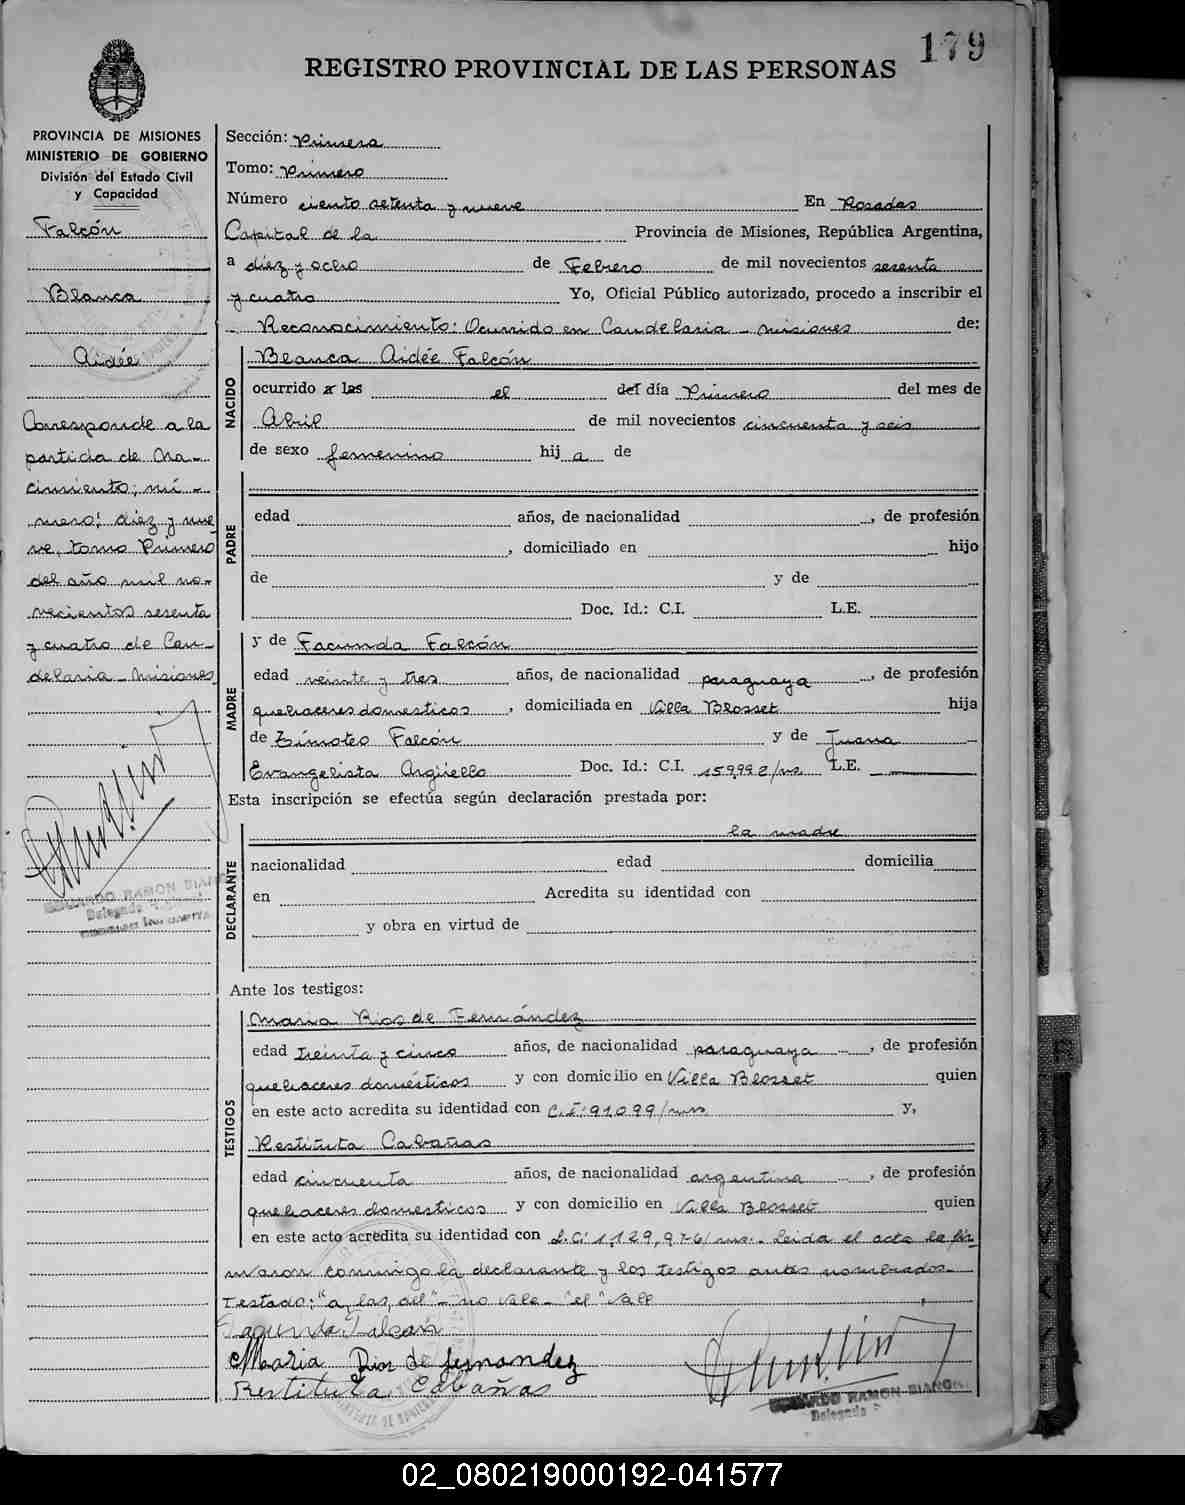 179
REGISTRO PROVINCIAL DE LAS PERSONAS
PROVINCIA DE MISIONES
MINISTERIO DE GOBIERNO
División del Estado Civil
y Capacidad
Falcón
Blanca
Aidée
Corresponde a la
partida de Na-
cimiento; nú-
mero: diez y nue
ve, tomo Primero
del año mil no-
vecientos sesenta
y cuatro de Can-
delaria - Misiones
EDUARDO RAMON BIAN
Delegado
Sección: Primera
Tomo: Primero
Número ciento setenta y nueve En Posadas
Capital de la Provincia de Misiones, República Argentina,
a diez y ocho de Febrero de mil novecientos sesenta
y cuatro Yo, Oficial Público autorizado, procedo a inscribir el
- Reconocimiento: Ocurrido en Candelaria - Misiones de:
NACIDO
Blanca Aidée Falcón
ocurrido a las el del día Primero del mes de
Abril de mil novecientos cincuenta y seis
de sexo femenino hij a de
PADRE
edad años, de nacionalidad , de profesión
, domiciliado en hijo
de y de
Doc. Id.: C.I. L.E.
MADRE
y de Facunda Falcón
edad veinte y tres años, de nacionalidad paraguaya , de profesión
quehaceres domesticos , domiciliada en Villa Blosset hija
de Timoteo Falcón y de Juana
Evangelista Argüello Doc. Id.: C.I. 159,992/ms. L.E.
Esta inscripción se efectúa según declaración prestada por:
DECLARANTE
la madre
nacionalidad edad domicilia
en Acredita su identidad con
y obra en virtud de
Ante los testigos:
TESTIGOS
Maria Rios de Fernández
edad treinta y cinco años, de nacionalidad paraguaya , de profesión
quehaceres domésticos y con domicilio en Villa Blosset quien
en este acto acredita su identidad con C.I: 91,099/mns y,
Restituta Cabañas
edad cincuenta años, de nacionalidad argentina , de profesión
quehaceres domesticos y con domicilio en Villa Blosset quien
en este acto acredita su identidad con L.C: 1,129,976/ms.- Leida el acta la fir
maron conmigo la declarante y los testigos antes nombrados.-
Testado: "a, las, del" - no vale - "el" Vale
Facunda Falcon
Maria Rios de fernandez
Restituta Cabañas
EDUARDO RAMON BIANCHI
Delegado
02_080219000192-041577